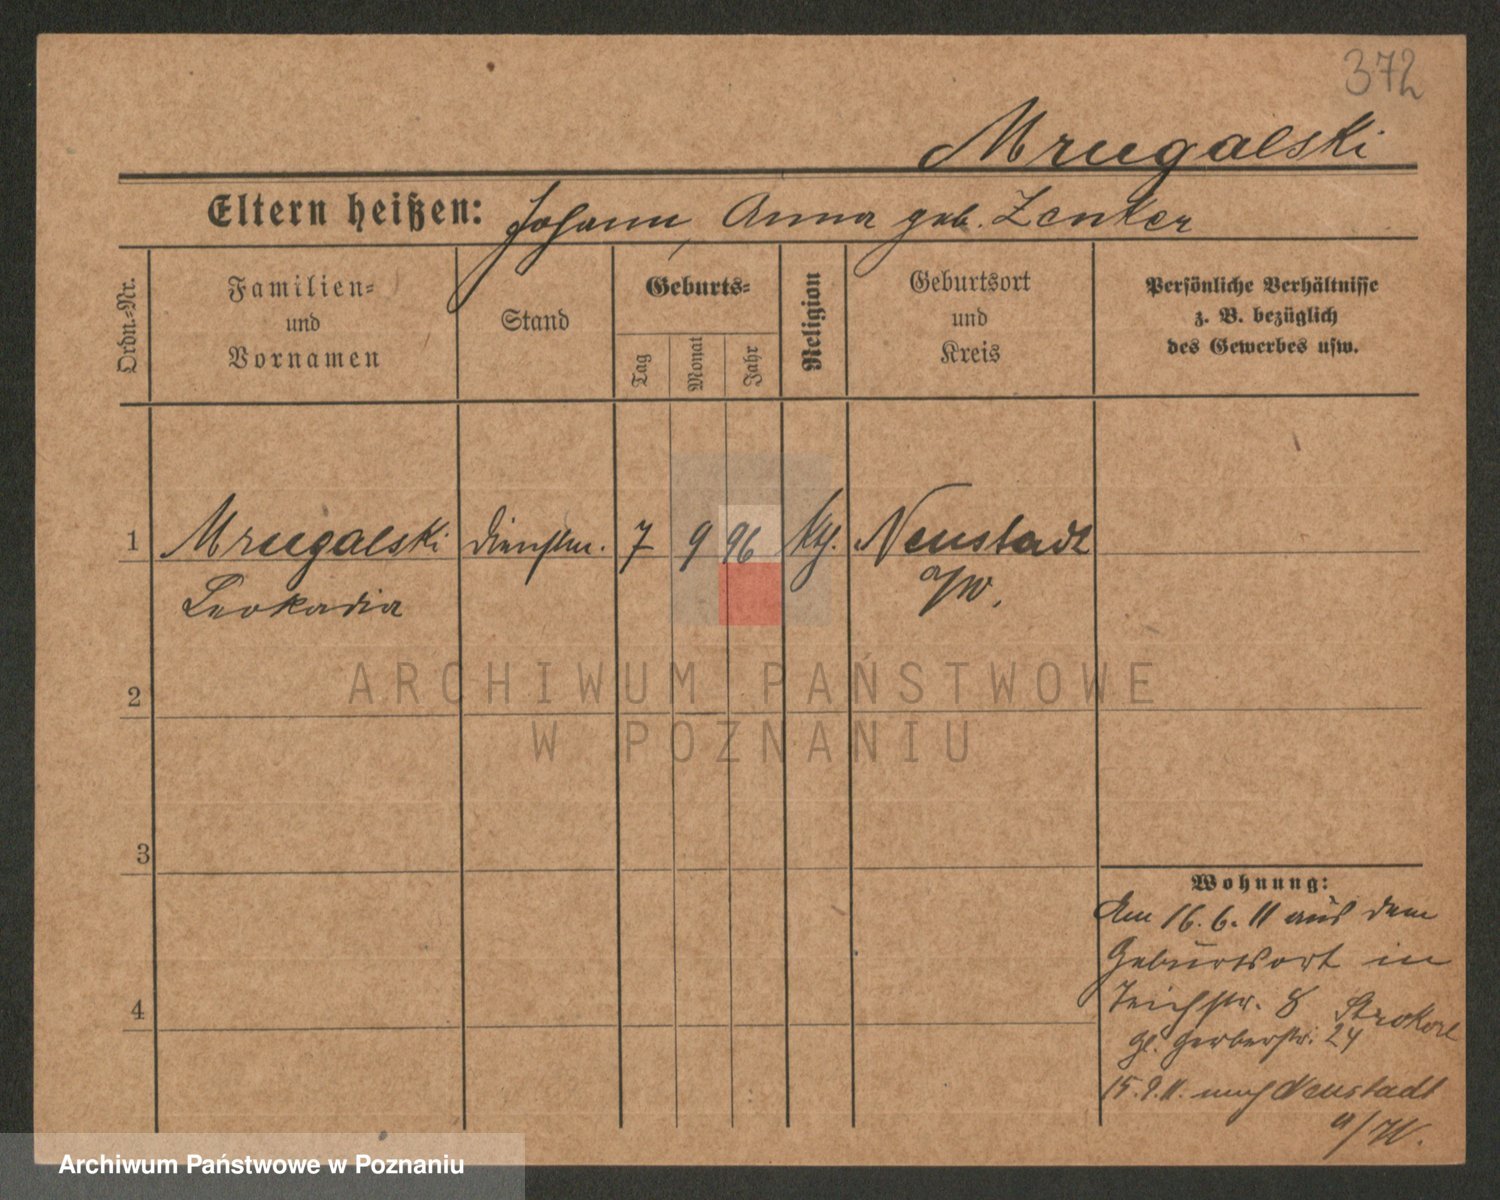 372
Mrugalski
Eltern heißen: Johann, Anna geb. Zenker
Ordn.=Nr.
Familien=
und
Vornamen
Stand
Geburts=
Tag
Monat
Jahr
Religion
Geburtsort
und
Kreis
Persönliche Verhältnisse
z. B. bezüglich
des Gewerbes usw.
1 Mrugalski Dienstm. 7 9 96 kth. Neustadt
Leokadia a/W.
2
3
4
Wohnung:
Am 16.6.11 aus dem
Geburtsort in
Teichstr. 8
gl. Gerberstr. 24
15.9.11. nach Neustadt
a/W.
ARCHIWUM PAŃSTWOWE
W POZNANIU
Archiwum Państwowe w Poznaniu